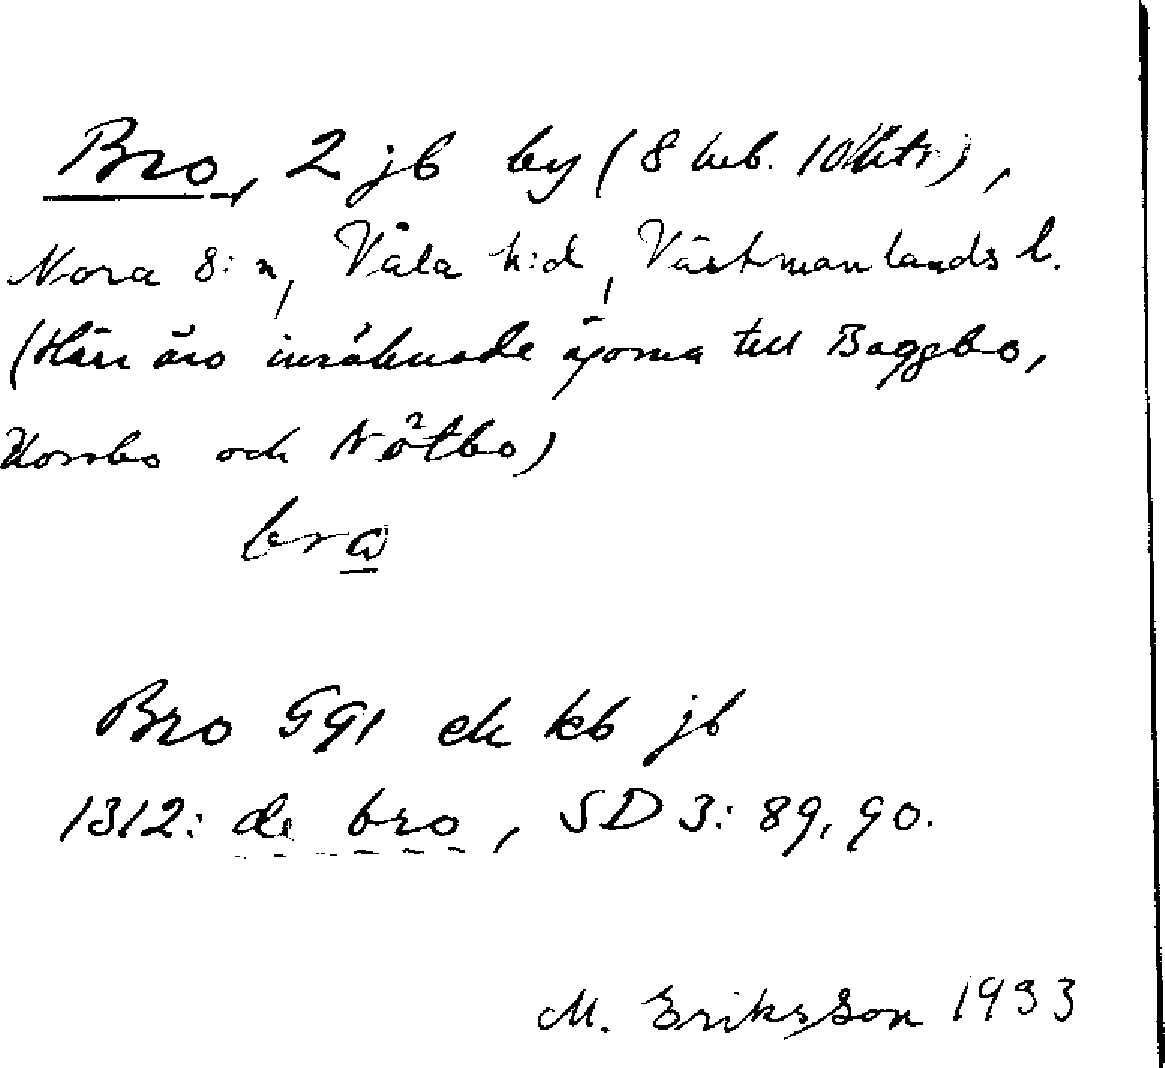 Bro, 2 jb by (8 heb. 10 lhtr),
Nora s:n, Våla h:d, Västmanlands l.
(Här äro inräknade ägorna till Baggbo,
Korsbo och Nötbo)
bro
Bro GGI ek kb jb
1312: de bro, SD 3: 89, 90.
M. Eriksson 1933